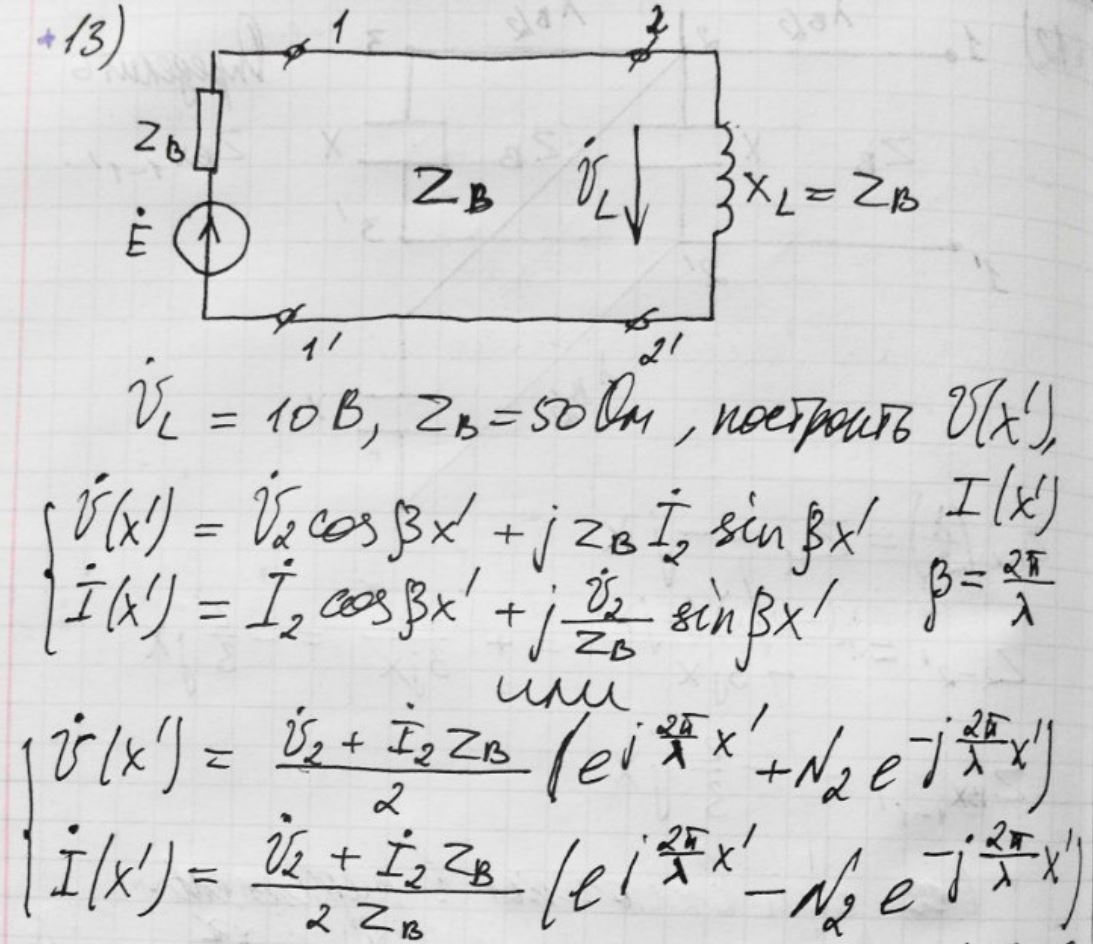 13)
1 2
Z_B
Ė
Z_B
U̇_L
X_L = Z_B
1' 2'
U̇_L = 10 В, Z_B = 50 Ом, построить U(x'),
I(x')
U̇(x') = U̇_2 cos βx' + j Z_B İ_2 sin βx'
İ(x') = İ_2 cos βx' + j U̇_2/Z_B sin βx'
β = 2π/λ
или
U̇(x') = (U̇_2 + İ_2 Z_B)/2 (e^{j 2π/λ x'} + N_2 e^{-j 2π/λ x'})
İ(x') = (U̇_2 + İ_2 Z_B)/(2 Z_B) (e^{j 2π/λ x'} - N_2 e^{-j 2π/λ x'})